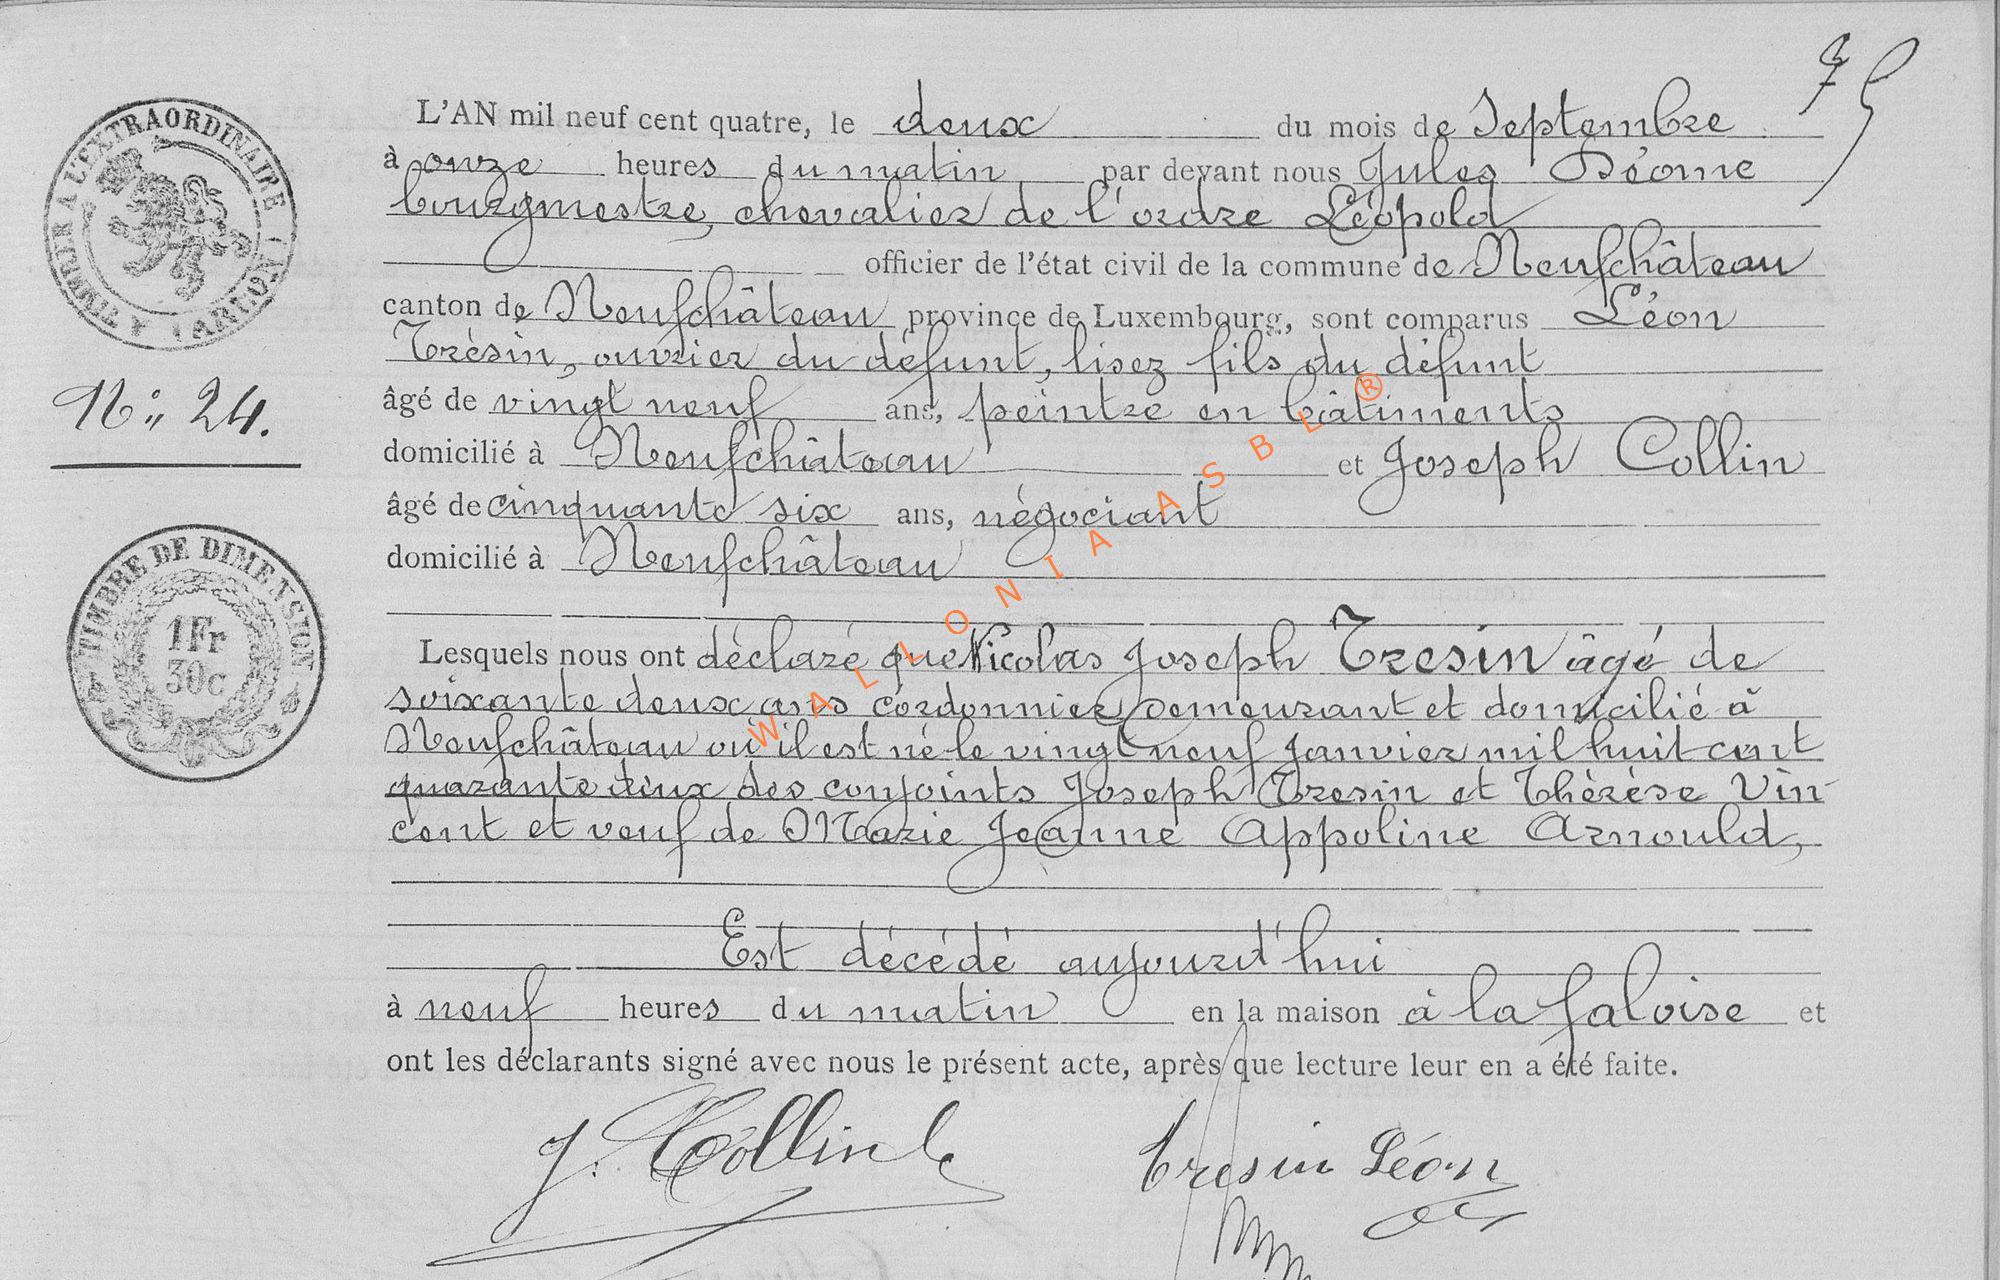 75
L'AN mil neuf cent quatre, le deux du mois de Septembre
à onze heures du matin par devant nous Jules Déome
bourgmestre, chevalier de l'ordre Léopold
officier de l'état civil de la commune de Neufchâteau
canton de Neufchâteau province de Luxembourg, sont comparus Léon
Trésin, ouvrier du défunt, lisez fils du défunt
âgé de vingt neuf ans, peintre en bâtiments
domicilié à Neufchâteau et Joseph Collin
âgé de cinquante six ans, négociant
domicilié à Neufchâteau
Lesquels nous ont déclaré que Nicolas Joseph Tresin âgé de
soixante deux ans cordonnier demeurant et domicilié à
Neufchâteau où il est né le vingt neuf Janvier mil huit cent
quarante deux des conjoints Joseph Tresin et Thérèse Vin
cent et veuf de Marie Jeanne Appoline Arnould,
Est décédé aujourd'hui
à neuf heures du matin en la maison à la faloise et
ont les déclarants signé avec nous le présent acte, après que lecture leur en a été faite.
J. Collin
Tresin Léon
TIMBRE A L'EXTRAORDINAIRE
(ARLON)
N° 24.
TIMBRE DE DIMENSION
1 Fr
30c
WALLONIA ASBL ®